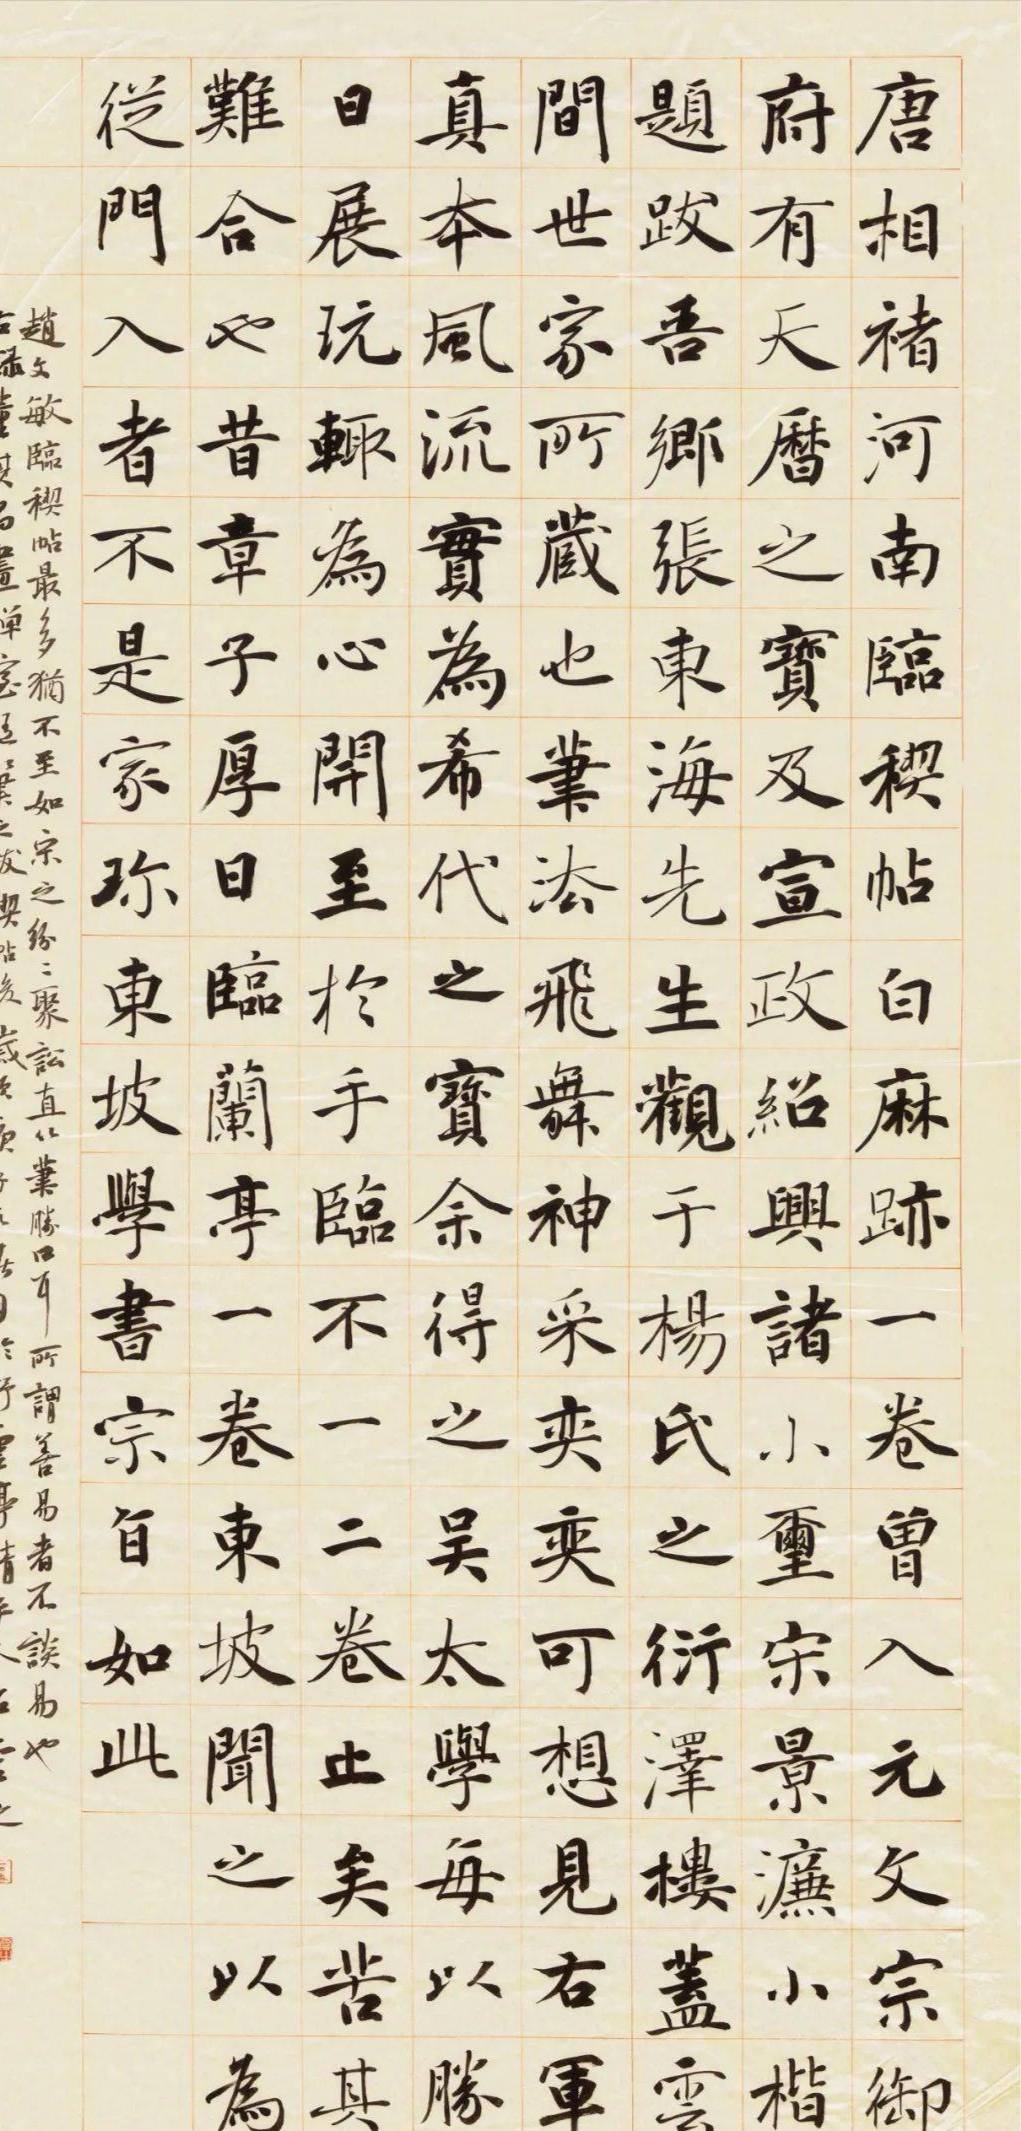 唐相褚河南臨稧帖白麻跡一卷曾入元文宗御
府有天曆之寶及宣政紹興諸小璽宋景濂小楷
題跋吾鄉張東海先生觀于楊氏之衍澤樓蓋雲
間世家所藏也筆法飛舞神采奕奕可想見右軍
真本風流實為希代之寶余得之吴太學每以勝
日展玩輒為心開至於手臨不一二卷止矣苦其
難合也昔章子厚日臨蘭亭一卷東坡聞之以為
從門入者不是家珎東坡學書宗旨如此
趙文敏臨稧帖最多猶不至如宋之紛〻聚訟直以筆勝口耳所謂善易者不談易也